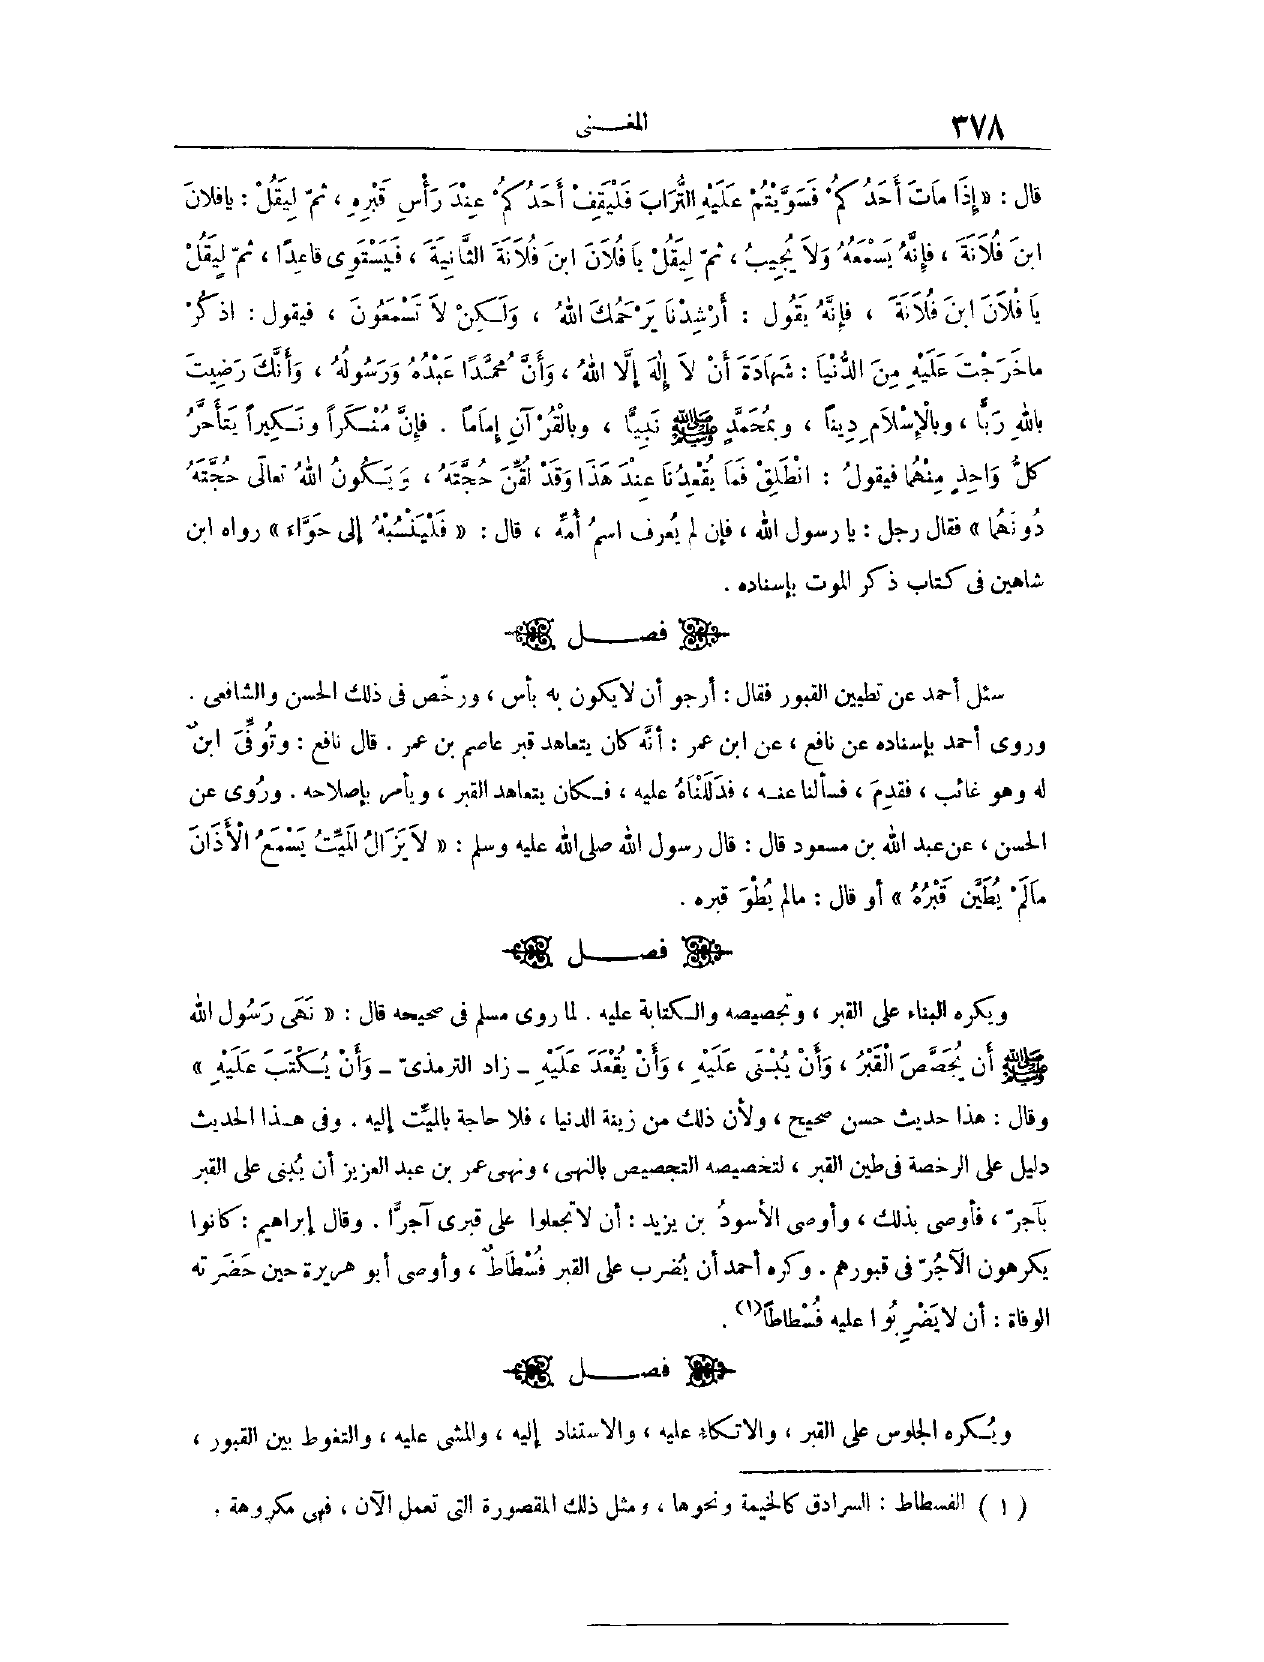 ٣٧٨
المغنى
قال : « إِذَا مَاتَ أَحَدُكُمْ فَسَوَّيْتُمْ عَلَيْهِ التُّرَابَ فَلْيَقِفْ أَحَدُكُمْ عِنْدَ رَأْسِ قَبْرِهِ ، ثمّ لِيَقُلْ : يافلانَ
ابنَ فُلَانَةَ ، فإِنَّهُ يَسْمَعُهُ وَلاَ يُجِيبُ ، ثمّ لِيَقُلْ يَا فُلَانَ ابنَ فُلَانَةَ الثَّانِيَةَ ، فَيَسْتَوِى قاعِدًا ، ثمّ لِيَقُلْ
يَا فُلَانَ ابنَ فُلَانَةَ ، فإِنَّهُ يَقُول : أَرْشِدْنَا يَرْحَمُكَ اللهُ ، وَلَكِنْ لاَ تَسْمَعُونَ ، فيقول : اذكُرْ
ماخَرَجْتَ عَلَيْهِ مِنَ الدُّنْيَا : شَهَادَةَ أَنْ لاَ إِلَهَ إِلَّا اللهُ ، وَأَنَّ مُحمَّدًا عَبْدُهُ وَرَسُولُهُ ، وَأَنَّكَ رَضِيتَ
باللهِ رَبًّا ، وبالْإِسْلَامِ دِيناً ، وبمُحَمَّدٍ ﷺ نَبِيًّا ، وبالْقُرْآنِ إِمَاماً . فإِنَّ مُنْكَراً ونَكِيراً يَتَأَخَّرُ
كلُّ وَاحِدٍ مِنْهُما فيقولُ : انْطَلِقْ فَمَا يُقْعِدُنَا عِنْدَ هَذَا وَقَدْ لُقِّنَ حُجَّتَهُ ، وَيَكُونُ اللهُ تعالَى حُجَّتَهُ
دُونَهُما » فقال رجل : يا رسول الله ، فإن لم يُعرف اسمُ أُمِّه ، قال : « فَلْيَنْسُبْهُ إلى حَوَّاءَ » رواه ابن
شاهين فى كتاب ذكر الموت بإسناده .
فصل
سئل أحمد عن تطيين القبور فقال : أرجو أن لايكون به بأس ، ورخّص فى ذلك الحسن والشافعى .
وروى أحمد بإسناده عن نافع ، عن ابن عمر : أنَّه كان يتعاهد قبر عاصم بن عمر . قال نافع : وتُوفِّىَ ابنٌ
له وهو غائب ، فقدِمَ ، فسألنا عنه ، فدَلَلْنَاهُ عليه ، فكان يتعاهد القبر ، ويأمر بإصلاحه . ورُوى عن
الحسن ، عن عبد الله بن مسعود قال : قال رسول الله صلى الله عليه وسلم : « لاَ يَزَالُ الْمَيِّتُ يَسْمَعُ الْأَذَانَ
مَالَمْ يُطَيَّن قَبْرُهُ » أو قال : مالم يُطْوَ قبره .
فصل
ويكره البناء على القبر ، وتجصيصه والكتابة عليه . لما روى مسلم فى صحيحه قال : « نَهَى رَسُول الله
ﷺ أن يُجَصَّصَ الْقَبْرُ ، وَأَنْ يُبْنَى عَلَيْهِ ، وَأَنْ يُقْعَدَ عَلَيْهِ ــ زاد الترمذىّ ــ وَأَنْ يُكْتَبَ عَلَيْهِ »
وقال : هذا حديث حسن صحيح ، ولأن ذلك من زينة الدنيا ، فلا حاجة بالميِّت إليه . وفى هذا الحديث
دليل على الرخصة فى طين القبر ، لتخصيصه التجصيص بالنهى ، ونهى عمر بن عبد العزيز أن يُبنى على القبر
بآجرّ ، فأوصى بذلك ، وأوصى الأسودُ بن يزيد : أن لا تجعلوا على قبرى آجرًّا . وقال إبراهيم : كانوا
يكرهون الآجُرّ فى قبورهم . وكره أحمد أن يُضرب على القبر فُسْطَاطٌ ، وأوصى أبو هريرة حين حَضَرَته
الوفاة : أن لايَضْرِبُوا عليه فُسْطاطاً(١) .
فصل
ويُكره الجلوس على القبر ، والاتكاء عليه ، والاستناد إليه ، والمشى عليه ، والتغوط بين القبور ،
( ١ ) الفسطاط : السرادق كالخيمة ونحوها ، ومثل ذلك المقصورة التى تعمل الآن ، فهى مكروهة .